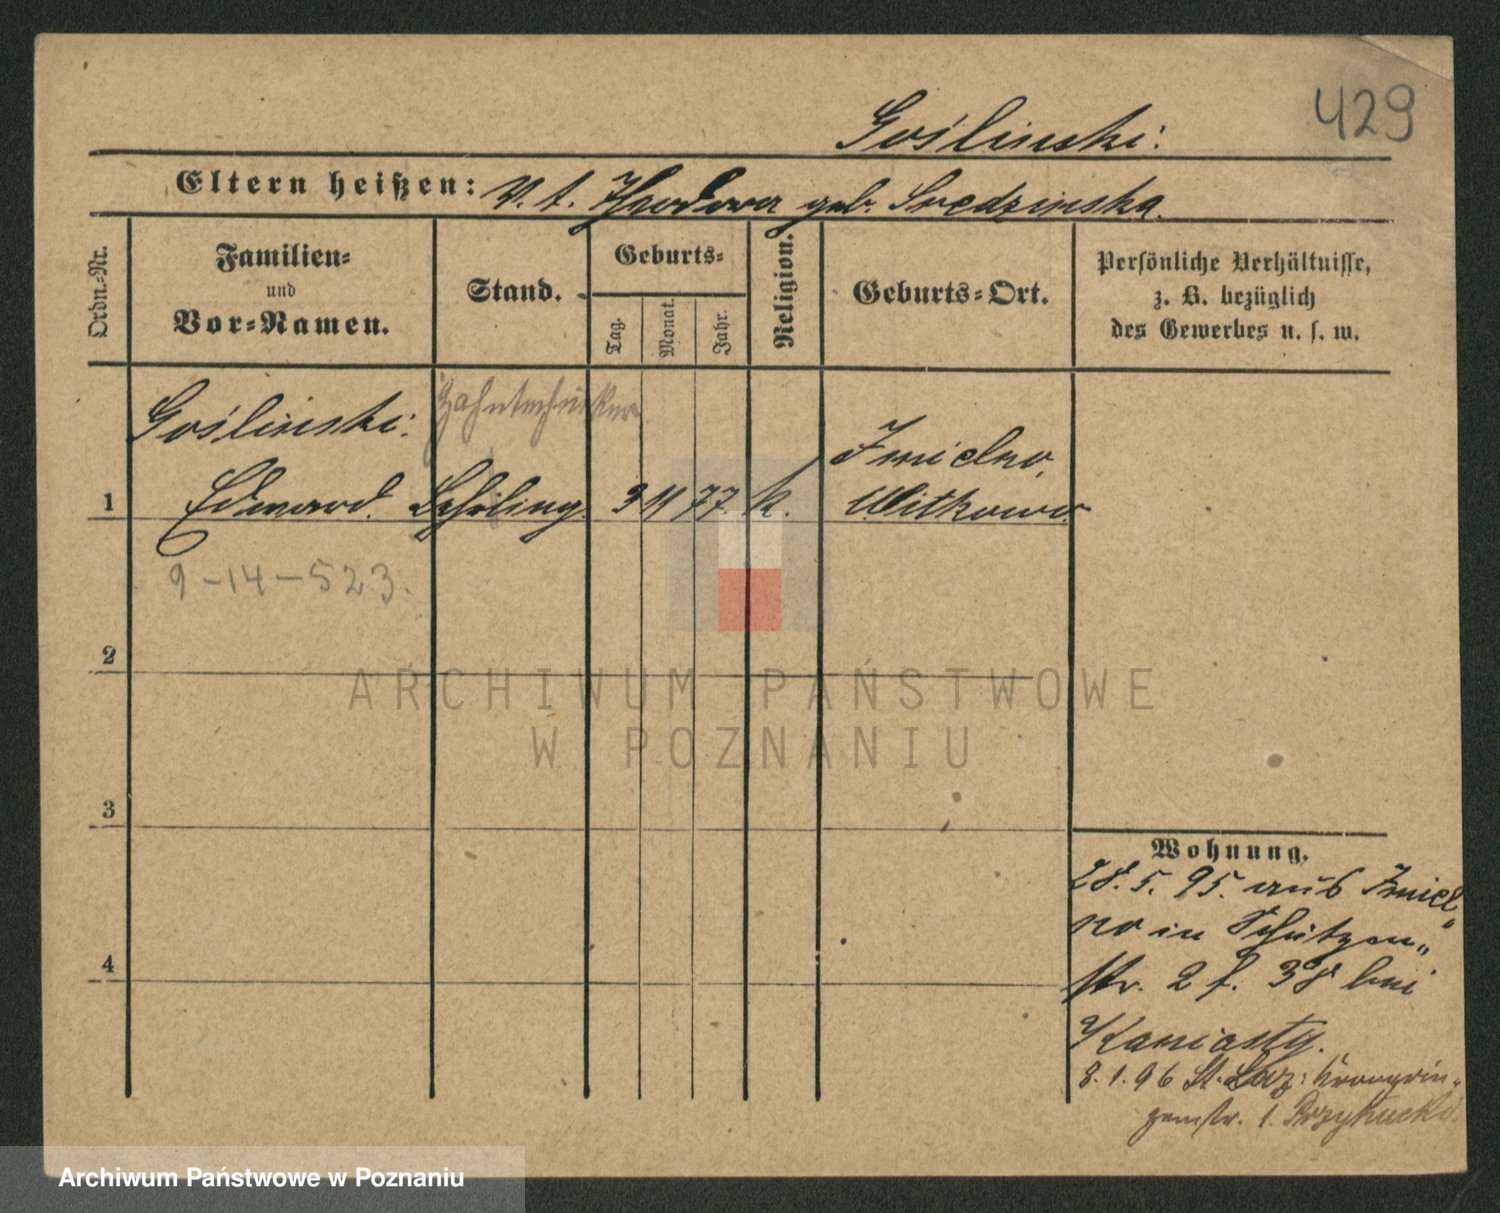 429
Goślinski.
Eltern heißen: V. t. Theodora geb. Sredzinska.
Ordn.-Nr.
Familien-
und
Vor-Namen.
Stand.
Geburts-
Tag.
Monat.
Jahr.
Religion.
Geburts-Ort.
Persönliche Verhältnisse,
z. B. bezüglich
des Gewerbes u. s. w.
Goślinski.
Zahntechniker
Imielno,
1 Edward. Lehrling. 3 11 77. k. Witkowo.
9-14-523.
2
3
4
Wohnung.
28. 5. 95. aus Imiel-
no in Schützen-
str. 2 f. 38 bei
Kaniasty.
8. 1. 96 St. Laz: Kronprin-
zenstr. 1.
ARCHIWUM PAŃSTWOWE
W POZNANIU
Archiwum Państwowe w Poznaniu